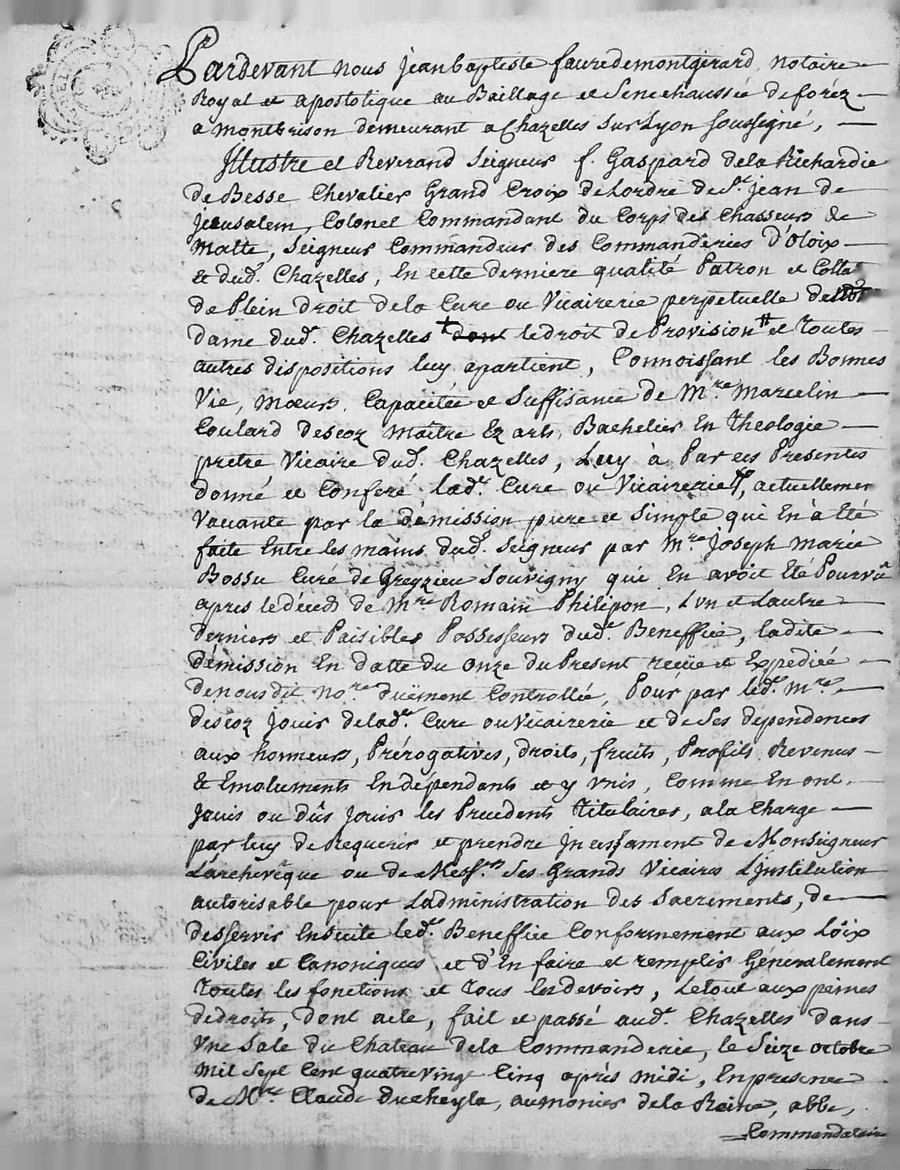 Pardevant nous jean baptiste faure de montgirard, notaire
Royal et apostolique au Baillage et Senechaussée de foréz
a montbrison demeurant a Chazelles Sur Lyon Soussegné,
Illustre et Reverand Seigneur f. Gaspard de la Richardie
de Besse Chevalier Grand Croix de Lordre de St. jean de
jerusalem, Colonel Commandant du Corps des Chasseurs de
Malte, Seigneur Commandeur des Commanderies d'Oloix
& dud. Chazelles, En cette derniere qualité Patron et Collat.
de Plein droit de la Cure ou Vicairerie perpetuelle de
dame dud. Chazelles + dont le droit de Provision # et toutes
autres dispositions luy apartient, Connoissant les Bonnes
Vie, mœurs, Capacitée et Suffisance de Mre. Marcelin
Coulard Descoz Maitre Ez arts, Bachelier En theologie
prêtre Vicaire dud. Chazelles, Luy à Par ces Presentes
donné et Conferé lade. Cure ou Vicairerie, actuellement
Vacante par la démission pure et Simple qui En à Eté
faite Entre les mains dud. Seigneur par Mre. Joseph Marie
Bossu Curé de Greyzieu Souvigny qui En avoit Eté Pourvû
apres le déces de Mre. Romain Philipon, Lvn et Lautre
derniers et Paisibles Possesseurs dud. Beneffice, ladite
démission En datte du onze du Present recüe et Expediée
de nous dit nore. düement Controllée, Pour par led. Mre.
descoz jouir de lade. Cure ou Vicairerie et de Ses dependences
aux honneurs, Prérogatives, droits, fruits, Profits Revenus
& Emoluments En dépendants et y vnis, Comme En ont
Jouis ou dûs jouir les Precedents Titulaires, a la Charge
par luy de Requerir et prendre jncessament de Monseigneur
L'archevêque ou de Messrs. Ses Grands Vicaires L'jnstitution
autorisable pour Ladministration des Sacrements, de
desservir Ensuite led. Beneffice Conformement aux Loix
Civiles et Canoniques et d'En faire et remplir Géneralement
toutes les fonctions et tous les devoirs, Le tout aux peines
de droits, dont acte, fait et passé aud. Chazelles dans
vne Sale du Chateau de la Commanderie, le Seize octobre
mil Sept Cent quatre vingt Cinq aprés midi, En presence
de Mre. Claude Ducheyla, aumonier de la Reine, abbe,
Commendataire